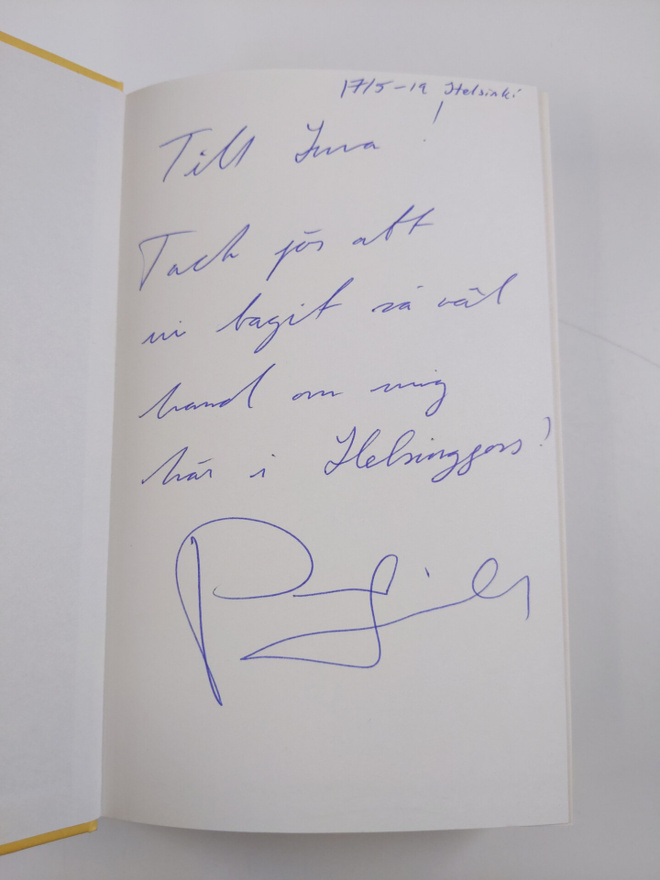 17/5-19 Helsinki
Till
Tack för att
ni tagit så väl
hand om mig
här i Helsingfors!